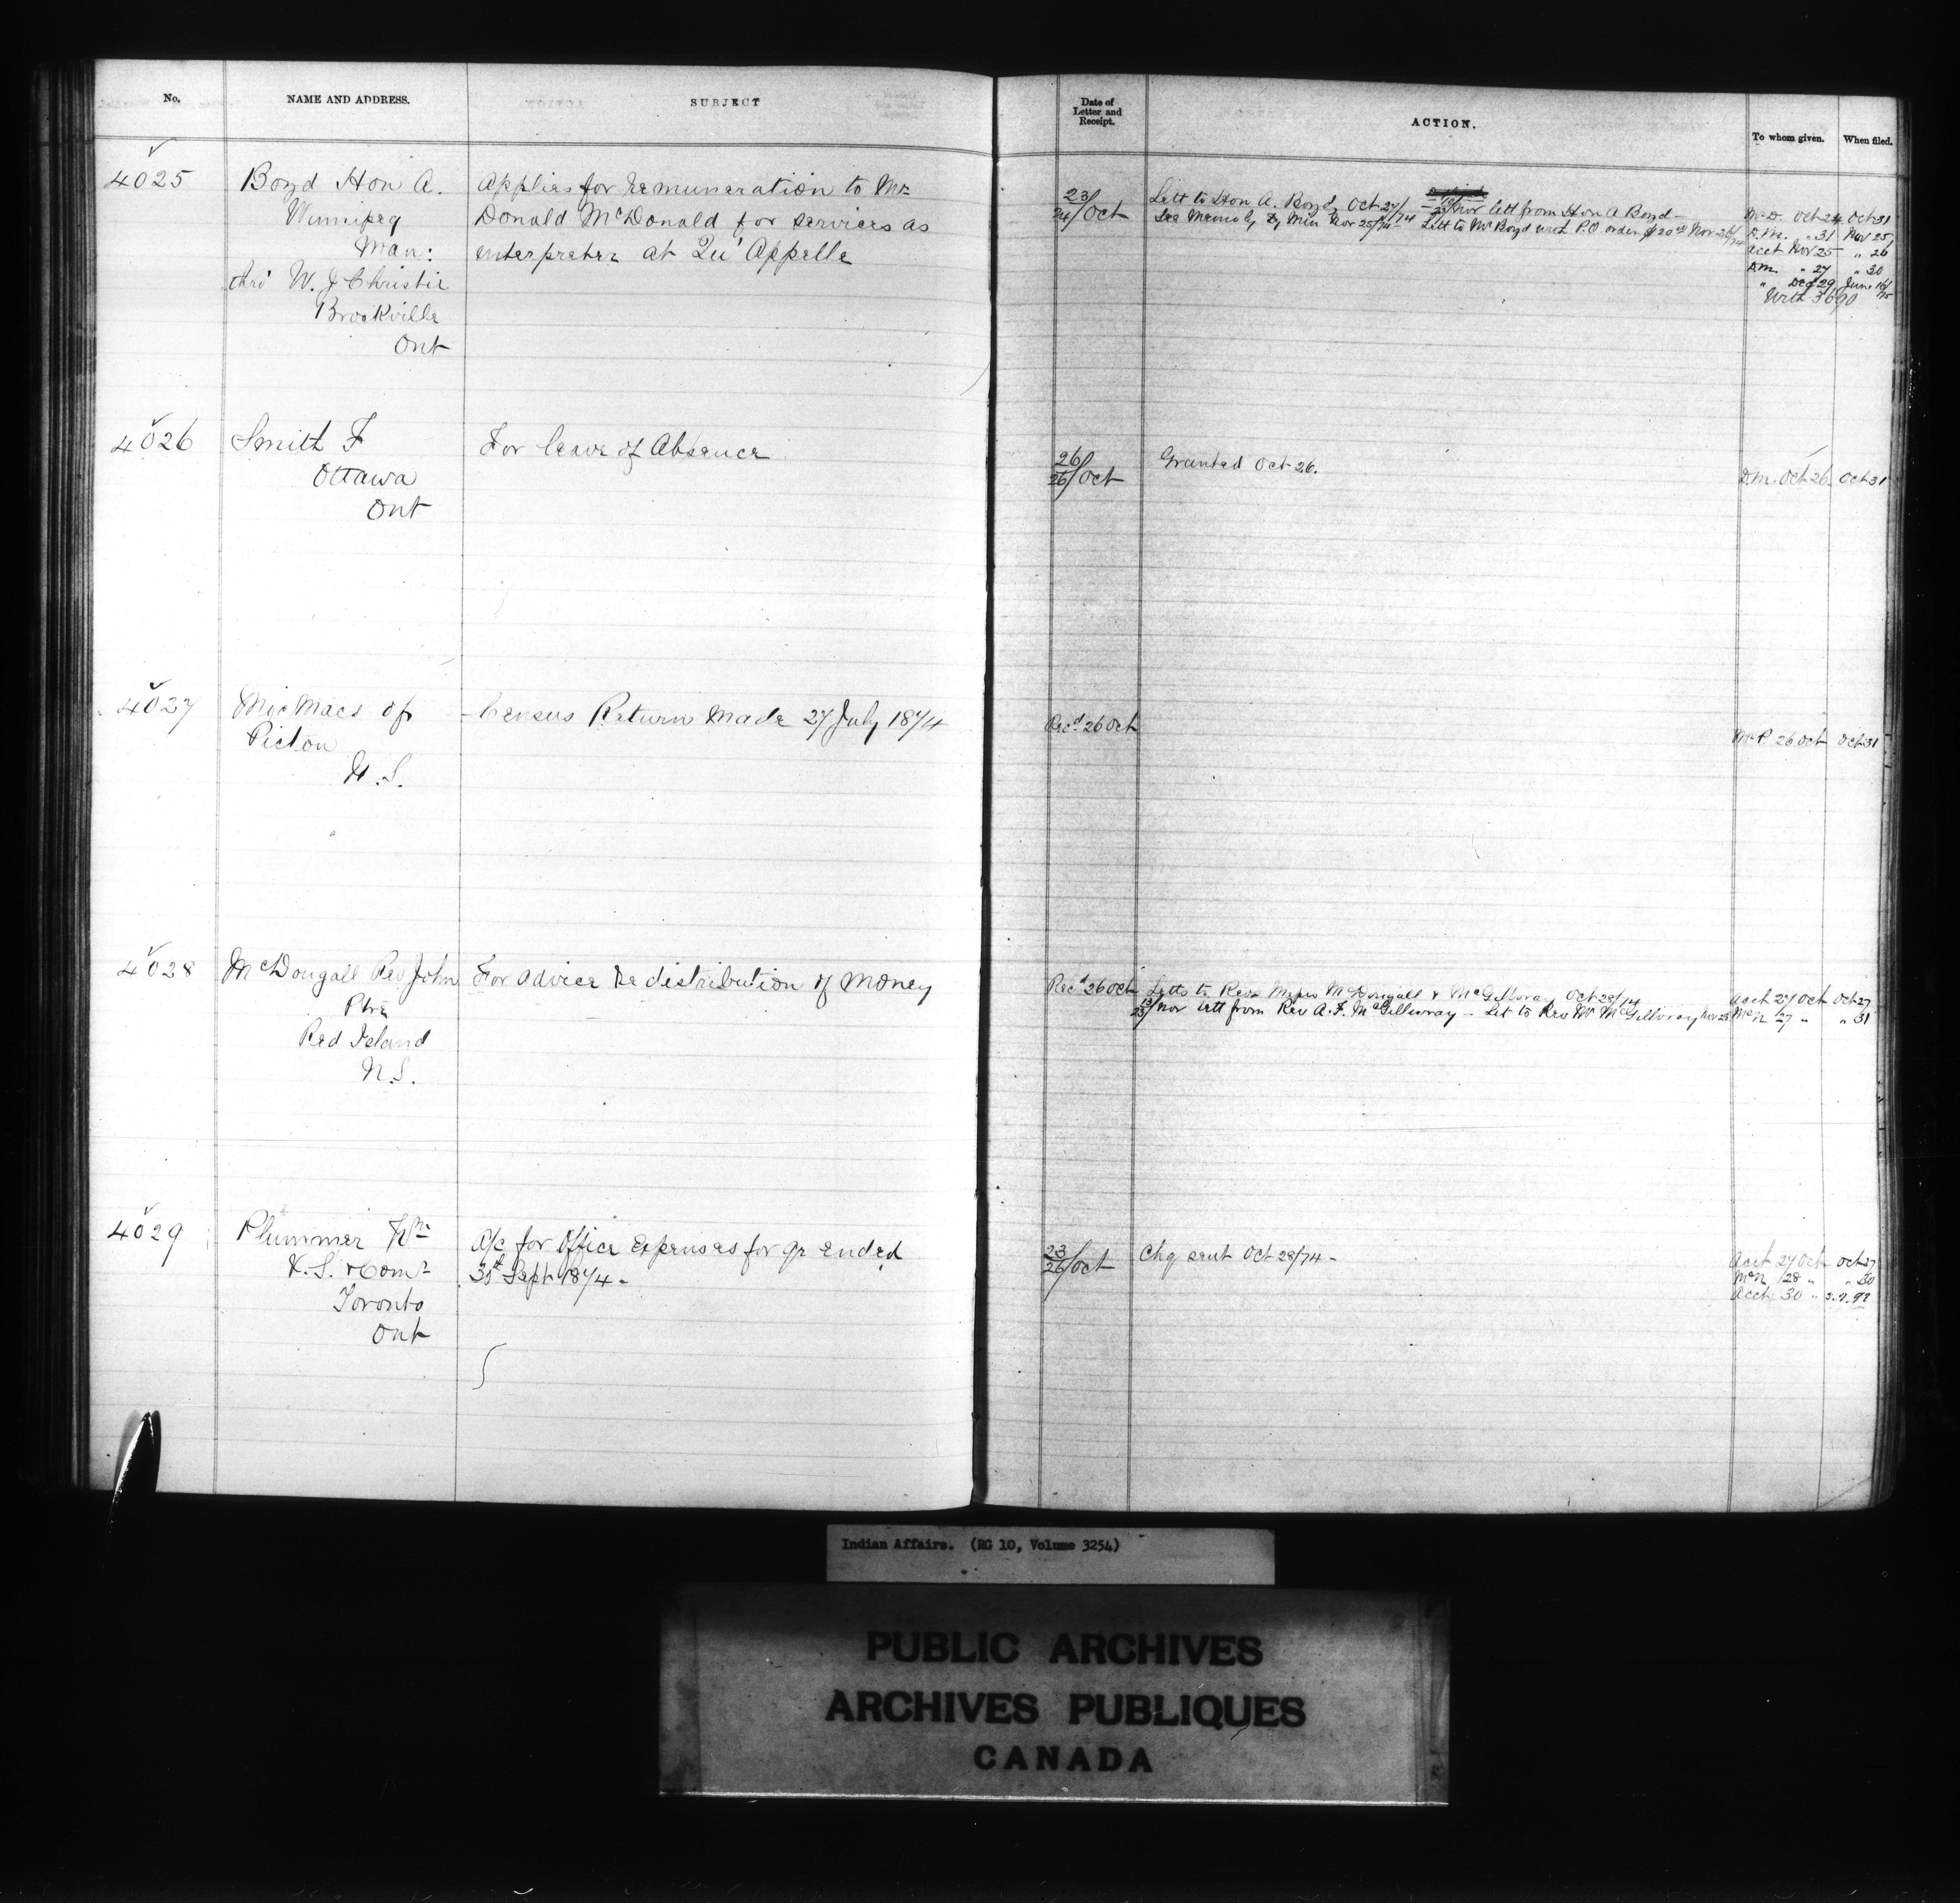 No. NAME AND ADDRESS. SUBJECT
4025 Boyd Hon A. Applies for remuneration to Mr
Winnipeg Donald McDonald for services as
Man: interpreter at Qu'Appelle
thro' W. J Christie
Brockville
Ont
4026 Smith F For leave of Absence
Ottawa
Ont
4027 MicMacs of Census Return made 27 July 1874
Pictou
N.S.
4028 McDougall Rev John For advice re distribution of money
Red Island
N.S.
4029 Plummer Wm A/c for Office Expenses for qr ended
V.S. & Comr 30th Sept 1874 -
Toronto
Ont
Date of Letter and Receipt. ACTION. To whom given. When filed.
23/24/Oct Lett to Hon A. Boyd, Oct 27/74 Nov lett from Hon A Boyd -
See Memo by Dy Min Nov 25/74 - Lett to Mr Boyd with P.O. order $20.00 Nov 26/74
Oct 24 Oct 31
D.M. " 31 Nov 25
Acct Nov 25 " 26
D.M. " 27 " 30
" Dec 29 June 16/75
With 3690
26/26/Oct Granted Oct 26. D.M. Oct 26 Oct 31
Recd 26 Oct 26 Oct Oct 31
Recd 26 Oct Letts to Revs Messrs McDougall & McGillvray Oct 28/74 Acct 27 Oct Oct 27
Nov lett from Rev A. F. McGillivray - Let to Rev Mr McGillvray Nov 25 McN 27 " " 31
23/26/Oct Chq sent Oct 28/74 - Acct 27 Oct Oct 27
McN 28 " " 30
Acct 30 "
Indian Affairs. (RG 10, Volume 3254)
PUBLIC ARCHIVES
ARCHIVES PUBLIQUES
CANADA